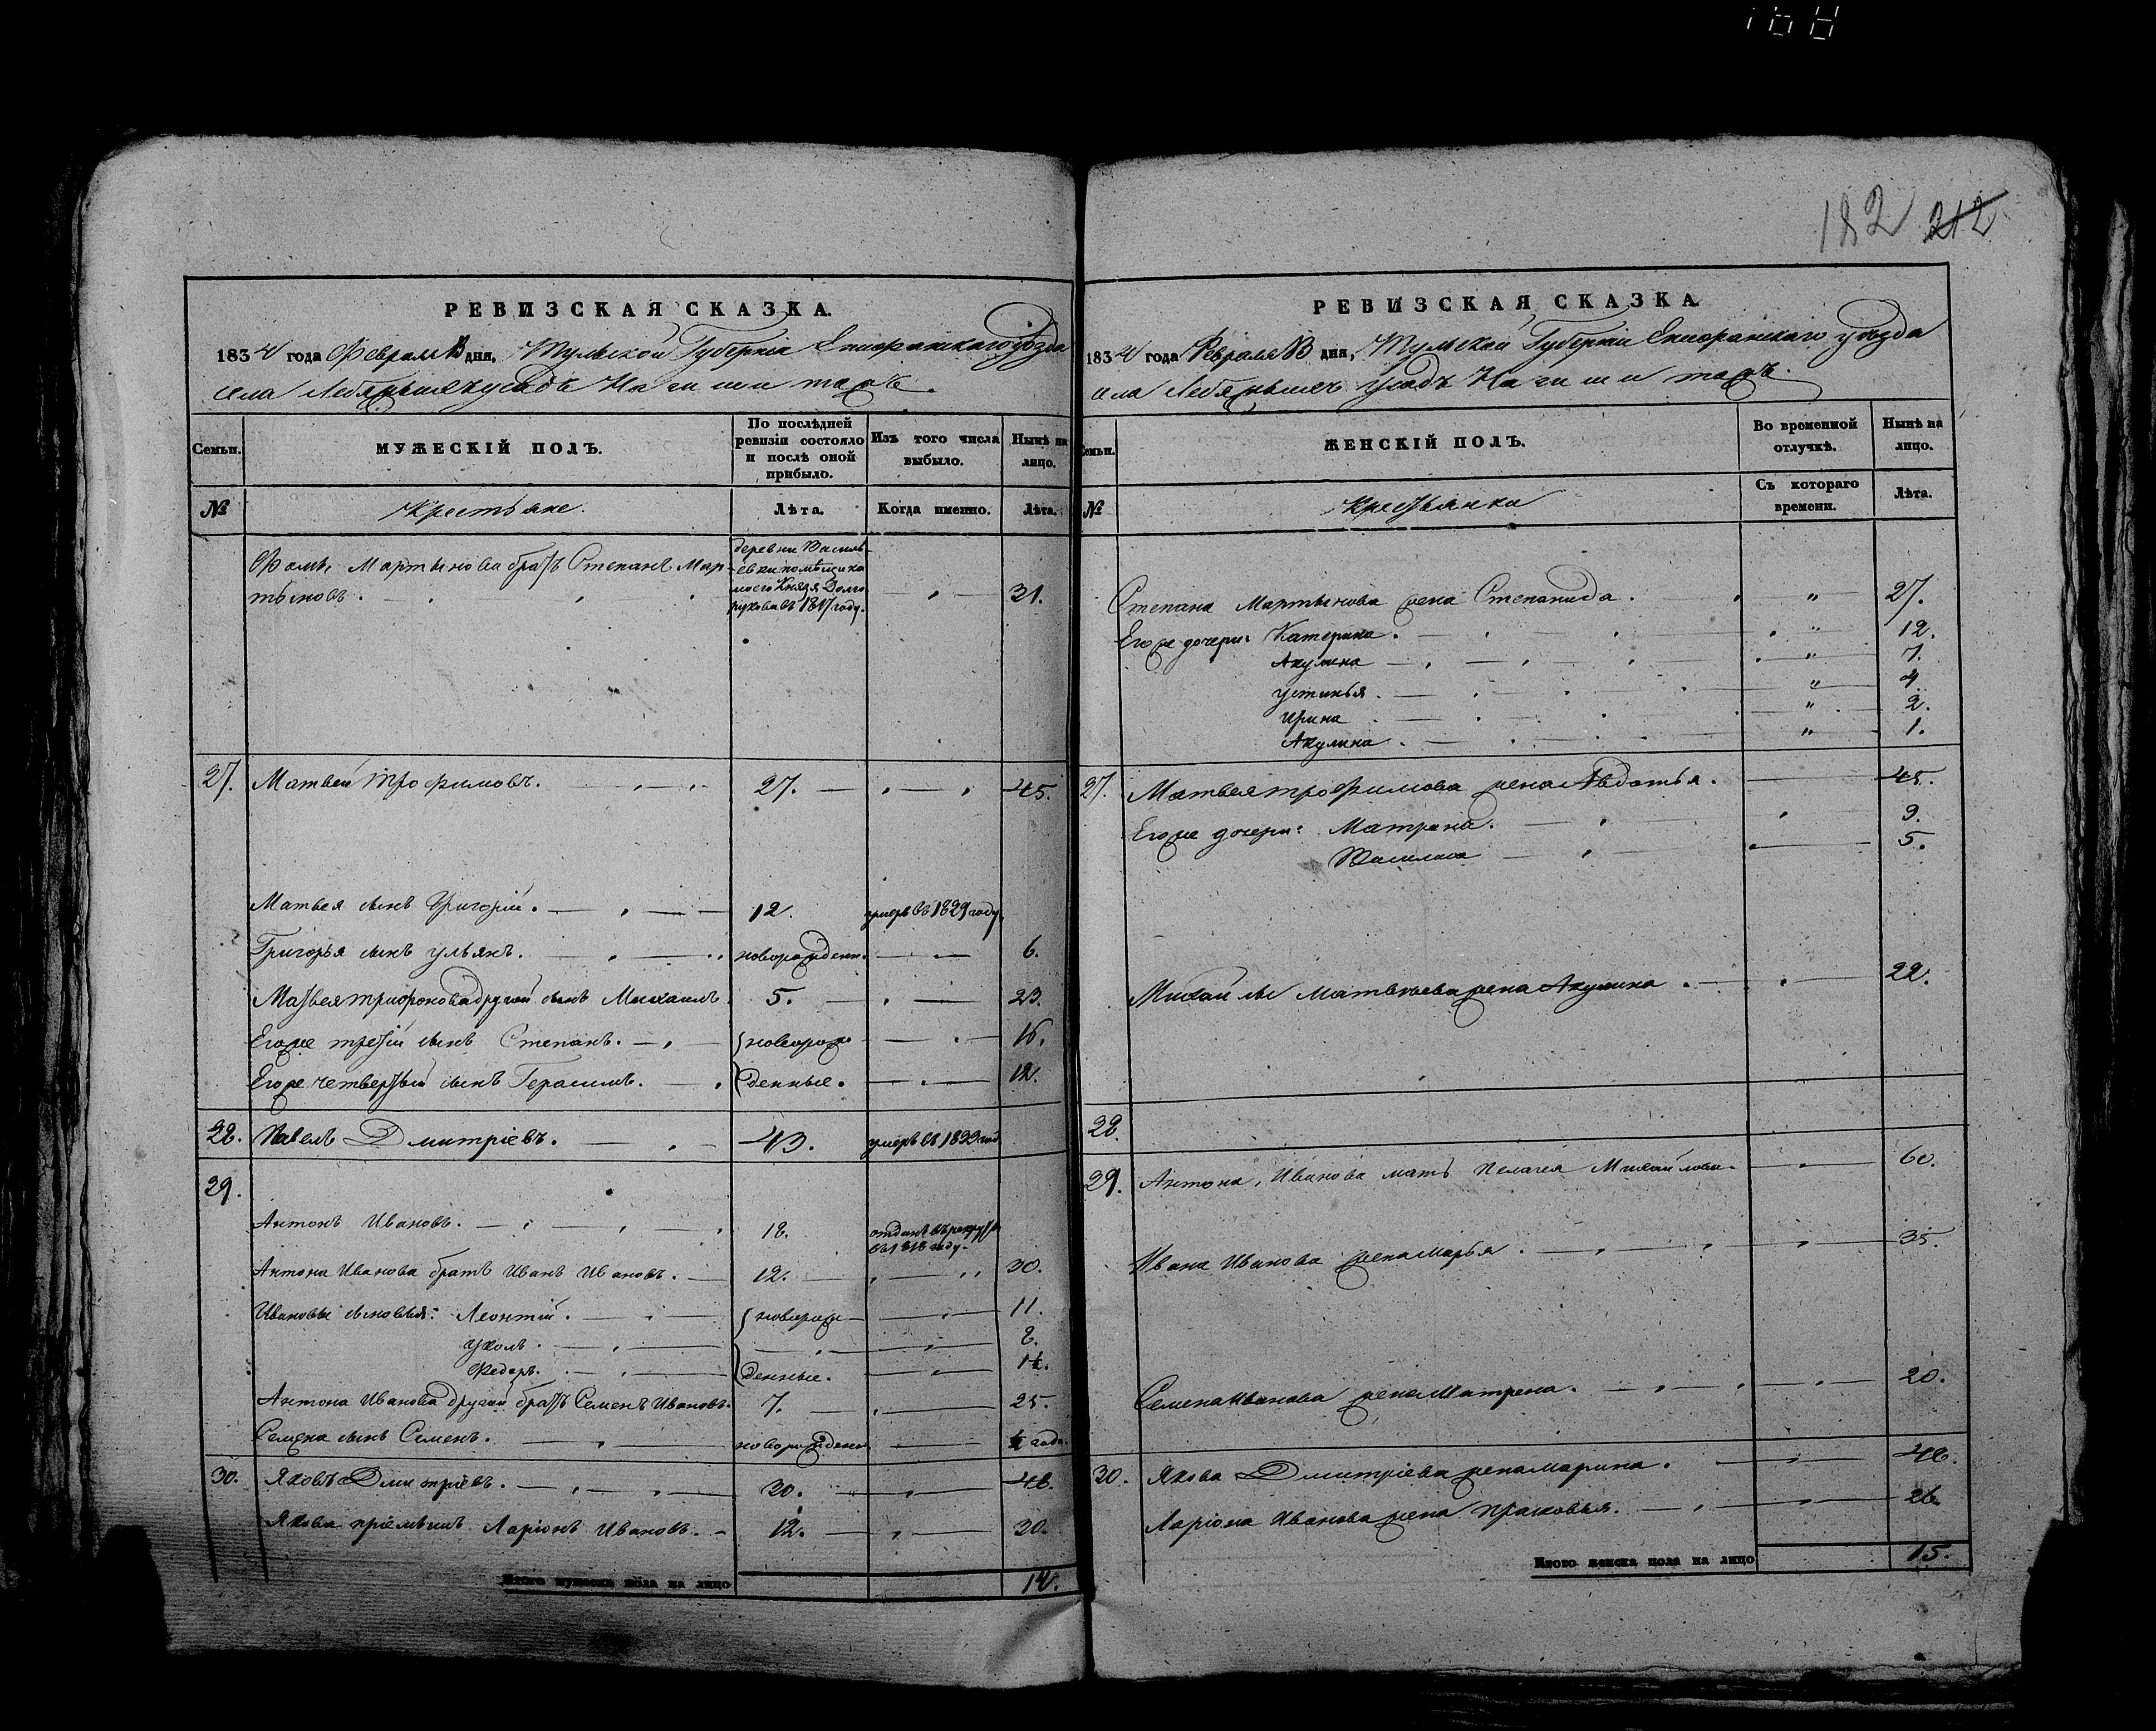 168
182 212
РЕВИЗСКАЯ СКАЗКА.
1834 года Февраля дня, Тульской Губерніи Епифанскаго уѣзда
села
МУЖЕСКІЙ ПОЛЪ.
Семьи.
По послѣдней
ревизіи состояло
и послѣ оной
прибыло.
Изъ того числа
выбыло.
Нынѣ на
лицо.
№
Крестьяне.
Лѣта.
Когда именно.
Лѣта.
деревни Василь-
евки помѣщика
Князя Долго
рукова въ 1817 году.
Фомы Мартынова братъ Степанъ Мар-
тыновъ. 31.
27. Матвей Трофимовъ. 27. 45.
Матвея сынъ Григорій. 12. умеръ въ 1829 году
Григорья сынъ Ульянъ. новорожденн. 6.
Матвея другой сынъ Михаилъ 5. 23.
Его же третій сынъ Степанъ. новорож 16.
Его же четвертый сынъ Герасимъ. денные. 12.
28. Павелъ Дмитріевъ. 43. умеръ въ 1833 год
29.
Антонъ Ивановъ. 18. отданъ въ рекруты
въ 1818 году.
Антона Иванова братъ Иванъ Ивановъ. 12. 30.
Ивановы сыновья: Леонтій. новорож 11.
8.
Федоръ. денные.
Антона Иванова другой братъ Семенъ Ивановъ. 7. 25.
Семена сынъ Семенъ. новорожденн года.
30. Яковъ Дмитріевъ. 30. 48.
Якова пріемышъ Ларіонъ Ивановъ. 12. 30.
Итого мужеска пола на лицо 14.
РЕВИЗСКАЯ СКАЗКА.
1834 года Февраля дня, Тульской Губерніи Епифанскаго уѣзда
села
Семьи.
ЖЕНСКІЙ ПОЛЪ.
Во временной
отлучкѣ.
Нынѣ на
лицо.
№
Крестьянки
Съ котораго
времени.
Лѣта.
Степана Мартынова жена Степанида. " 27.
Его же дочери: Катерина. " 12.
Акулина " 7.
Устинья. " 4.
Ирина " 2.
Акулина. " 1.
27. Матвея Трофимова жена Авдотья. 45.
Его же дочери: Матрена. 9.
5.
Михайлы Матвѣева жена Акулина. 22.
28.
29. Антона Иванова мать Пелагея Михайлова. 60.
Ивана Иванова жена Марья. 35.
Семена Иванова жена Матрена. 20.
30. Якова Дмитріева жена Марина. 48.
Ларіона Иванова жена Прасковья. 26.
Итого женска пола на лицо 15.